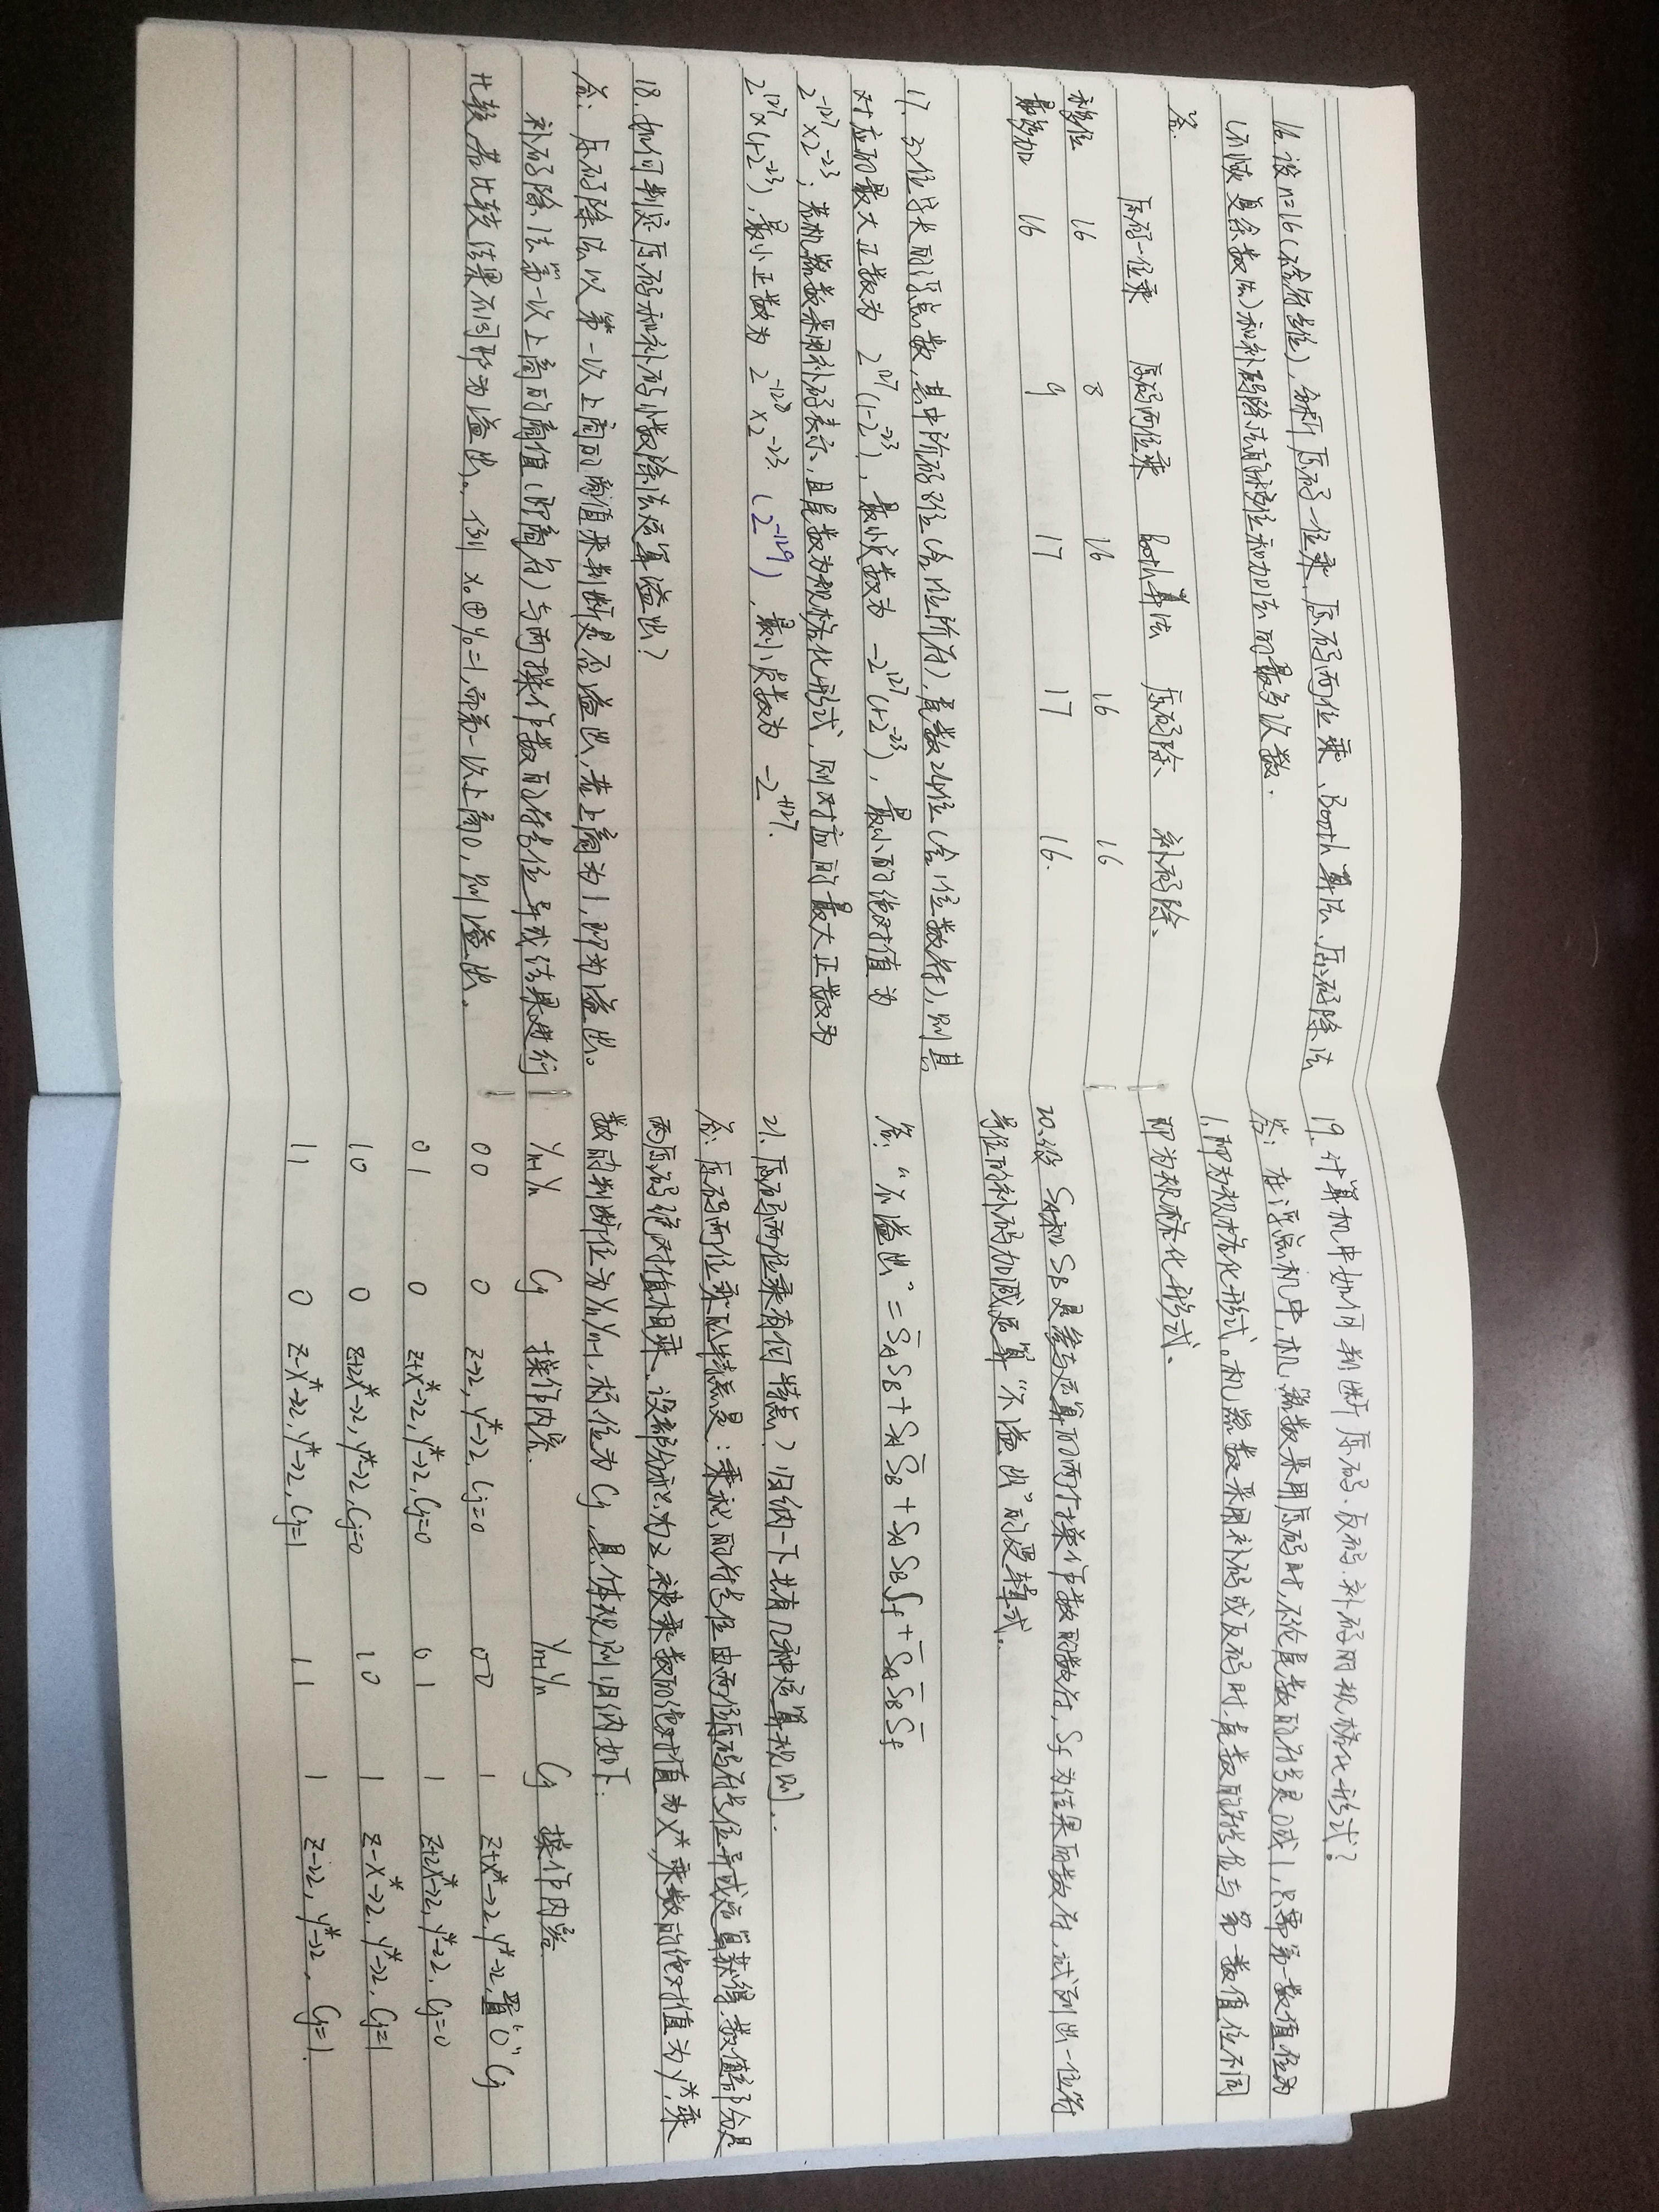 16.设n=16(不含符号位),分析原码一位乘、原码两位乘、Booth算法、原码除法
(不恢复余数法)和补码除法的移位和加法的最多次数.
答: 原码一位乘 原码两位乘 Booth算法 原码除 补码除
移位 16 8 16 16 16
最多加 16 9 17 17 16.
17. 32位字长的浮点数,其中阶码8位(含1位阶符),尾数24位(含1位数符),则其
对应的最大正数为 2^127(1-2^-23),最小负数为 -2^127(1-2^-23),最小的绝对值为
2^-127×2^-23;若机器数采用补码表示,且尾数为规格化形式,则对应的最大正数为
2^127×(1-2^-23),最小正数为 2^-128×2^-23.(2^-129),最小负数为 -2^+127.
18.如何判定原码和补码小数除法运算溢出?
答:原码除法以第一次上商的商值来判断是否溢出,若上商为1,即为溢出。
补码除法第一次上商的商值(即商符)与两操作数的符号位异或结果进行
比较,若比较结果不同即为溢出。例 x₀⊕y₀=1,而第一次上商0,则溢出。
19.计算机中如何判断原码.反码.补码的规格化形式?
答:在浮点机中,机器数采用原码时,不论尾数的符号是0或1,只需第一数值位为
1,即为规格化形式。机器数采用补码或反码时,尾数的符号位与第一数值位不同
即为规格化形式.
20.设 SA和SB是参与运算的两个操作数的数符,Sf为结果的数符,试列出一位符
号位的补码加减运算“不溢出”的逻辑式.
答:“不溢出”= S̄ASB+SAS̄B+SASBSf+S̄AS̄BS̄f
21.原码两位乘有何特点?归纳一下共有几种运算规则.
答:原码两位乘的特点是:乘积的符号位由两位原码符号位异或运算获得,数值部分是
两原码绝对值相乘.设部分积为z,被乘数的绝对值为x*,乘数的绝对值为y*,乘
数的判断位为Yn-1Yn,标位为Cj,具体规则归纳如下:
Yn-1Yn Cj 操作内容 Yn-1Yn Cj 操作内容
00 0 z→2,y*→2,Cj=0 00 1 z+x*→2,y*→2,置“0”Cj
01 0 z+x*→2,y*→2,Cj=0 01 1 z+2x*→2,y*→2,Cj=0
10 0 z+2x*→2,y*→2,Cj=0 10 1 z-x*→2,y*→2,Cj=1
11 0 z-x*→2,y*→2,Cj=1 11 1 z→2,y*→2,Cj=1.